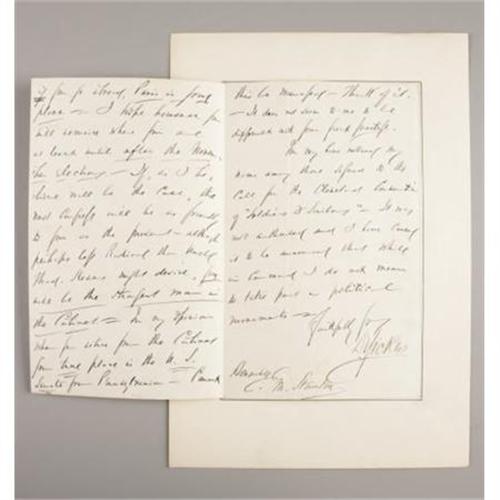 if you go abroad, Paris is your
place – I hope however you
will remain where you are
at least until after the Novem
ber Elections – If, as I be
lieve will be the case, the
next Congress will be as friendly
to you as the present – altho
perhaps less Radical than
Stevens might desire, you
will be the strongest man in
the Cabinet – In my opinion
when you retire from the Cabinet
your true place is the U. S.
Senate from Pennsylvania – Cannot
this be managed – Think of it.
– It does not seem to me to be
different with your friends
name among those signed to the
Call for the Cleveland Convention
of "Soldiers & Sailors" – It was
not authorized and I have caused
it to be announced that while
in command I do not mean
to take part in political
movements –
Faithfully Yrs
D Sickles
Honorable
E. M. Stanton